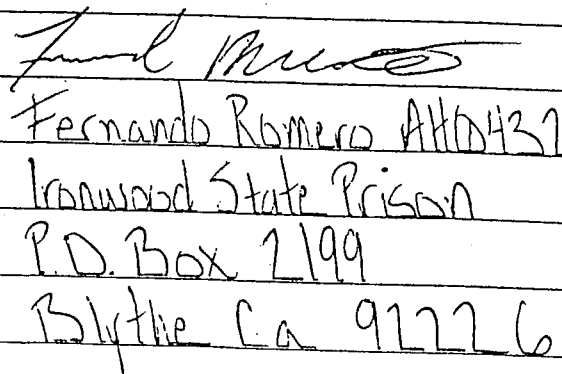 Fernando Romero AH0437
Ironwood State Prison
P.O. Box 2199
Blythe Ca 92226